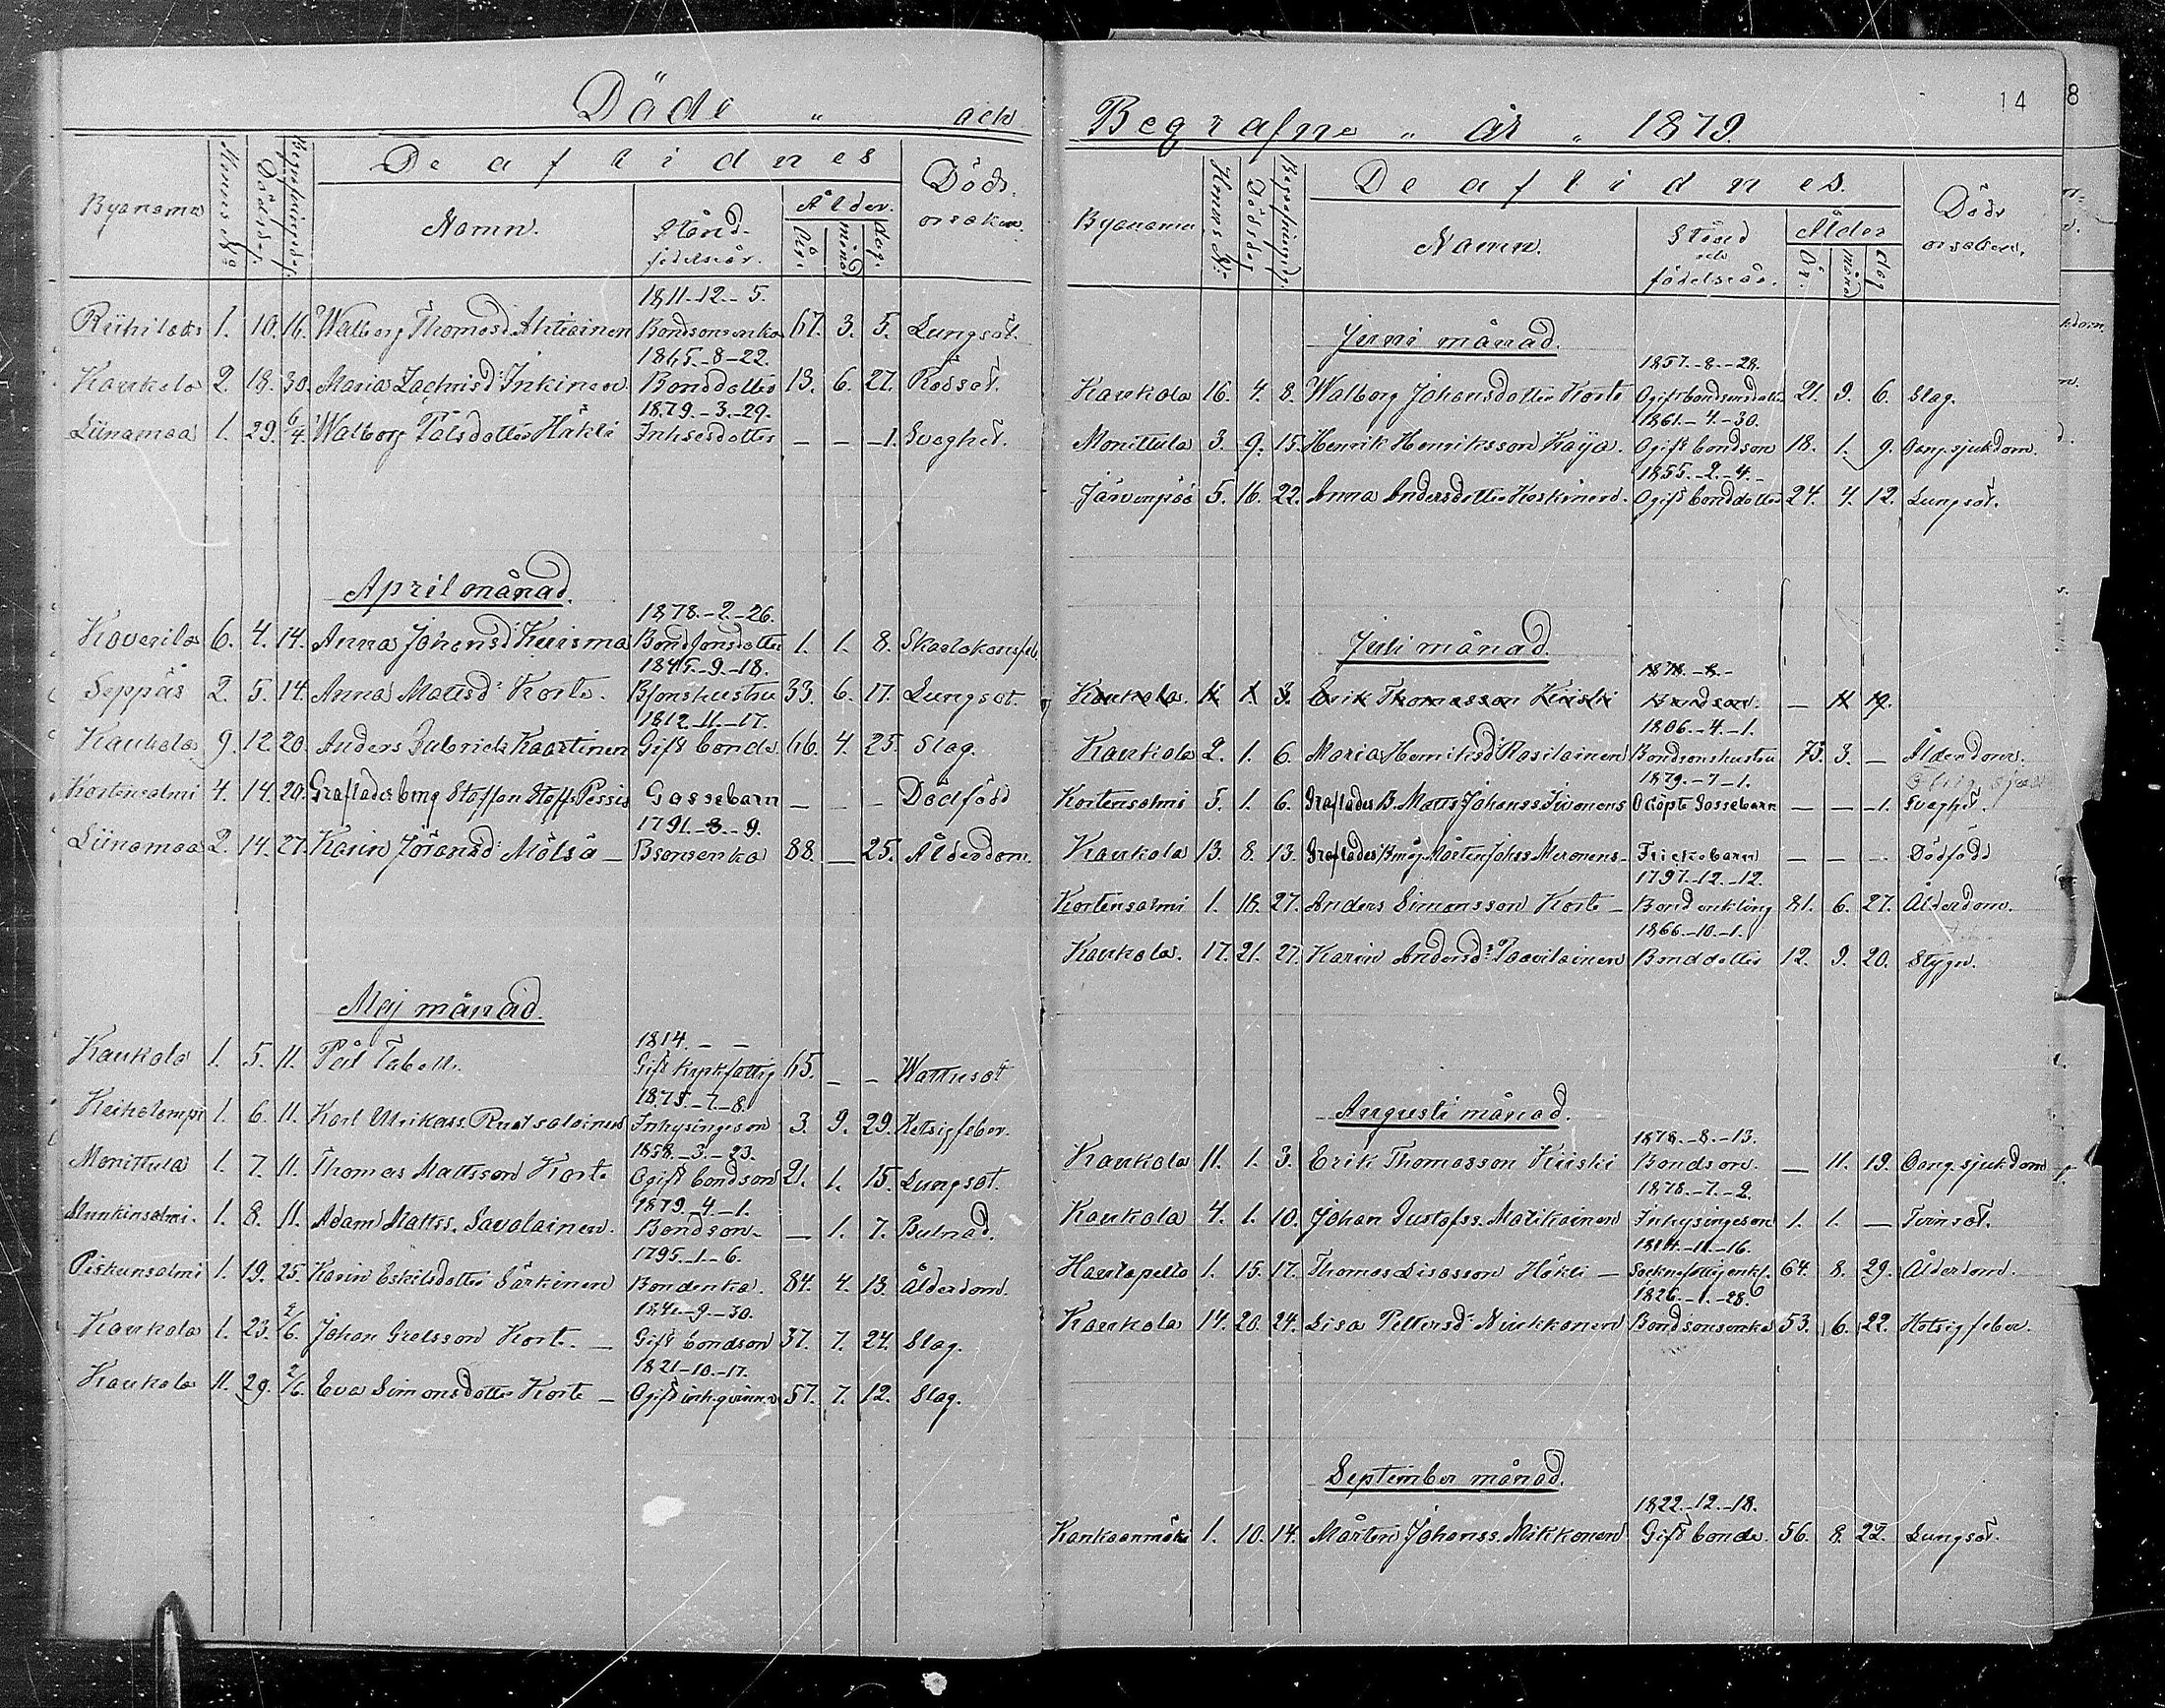 Döde " och
Byanamn
Hemns No
Dödsd:
Begrafningsdag
De aflidnes
Namn.
Stånd-
födelseår.
Ålder.
År.
månd
dag.
Döds-
orsaken.
1811.-12.-5.
Riihilaks 1. 10. 16. Walborg Thomasd. Ahtiainen Bondsonsenka 67. 3. 5. Lungsot.
1865.-8-22.
Kaukola 2. 18. 30. Maria Zachrisd: Inkinen Bonddotter 13. 6. 27. Rossot.
1879.-3.-29.
Liinamaa 1. 29. 6/4. Walborg Pålsdotter Häkli Inhsesdotter - - 1. Svaghet.
April månad.
1878.-2.-26.
Koverila 6. 4. 14. Anna Johansd: Kuisma Bondsonsdotter 1. 1. 8. Skarlakansfeb.
1845.-9.-18.
Seppäs 2. 5. 14. Anna Mattsd: Korte. Bsonshustru 33. 6. 17. Lungsot.
1812.-11.-17.
Kaukola 9. 12. 20. Anders Gabriels Kaartinen Gift bonde 66. 4. 25. Slag.
Kortensalmi 4. 14. 20. Staffan Staffs Pessis Gossebarn - - - Dödfödd
1791.-8.-9.
Liinamaa 2. 14. 27. Karin Jöransd: Mölsä - Bsonsenka 88. - 25. Ålderdom.
Maj månad.
1814. - -
Kaukola 1. 5. 11. Pål Tabell. Gift kyrkfattig 65. - - Wattusot
1875.-7.-8.
Keikelampi 1. 6. 11. Karl Ulrikass. Ruotsalainen Inhysingeson 3. 9. 29. Hetsigfeber.
1858.-3.-23.
Monittula 1. 7. 11. Thomas Mattsson Korte Ogift bondson 21. 1. 15. Lungsot.
1879.-4.-1.
Munkinsalmi. 1. 8. 11. Adam Mattss. Savolainen. Bondson- - 1. 7. Bulnad.
1795.-1.-6.
Piskunsalmi 1. 19. 25. Karin Eskilsdotter Särkinen Bondenka. 84. 4. 13. Ålderdom.
1841.-9.-30.
Kaukola 1. 23. 2/6. Johan Grelsson Korte. - Gift bondson 37. 7. 24. Slag.
1821-10.-17.
Kaukola 11. 29. 2/6. Eva Simonsdotter Korte - Ogift inh.qvinna 57. 7. 12. Slag.
Begrafne " år " 1879.
14
8
Byanamn
Hemns No:
Dödsdag
Begrafningsd.
De aflidnes.
Namn.
Stånd
och
födelseår.
Ålder
År.
månd
dag
Döds
orsaken.
Juni månad.
1857.-8.-28.
Kaukola 16. 4. 8. Walborg Johansdotter Korte Ogift bondsonsdotter 21. 9. 6. Slag.
1861.-4.-30.
Monittula 3. 9. 15. Henrik Henriksson Kaija. Ogift bondson 18. 1. 9. Gång.sjukdom.
1855.-2.-4.-
Järvenpää 5. 16. 22. Anna Andersdotter Koskinen. Ogift bonddotter 24. 4. 12. Lungsot.
Juli månad.
1878.-8.-
Kaukola. 11. 1. 3. Erik Thomasson Kiiski Bondson. - 11. 19.
1806.-4.-1.
Kaukola 2. 1. 6. Maria Henriksd: Rasilainen Bondsonshustru 73. 3. - Ålderdom.
1879.-7-1.
Kortensalmi 5. 1. 6. Matts Johanss Iivonens Odöpt Gossebarn - - 1. Svaghet.
Kaukola 13. 8. 13. Mårten Johss Meronens- Flickebarn - - - Dödfödd
1797.-12.-12.
Kortensalmi 1. 16. 27. Anders Simonsson Korte - Bondenkling 81. 6. 27. Ålderdom.
1866.-10.-1.
Kaukola. 17. 21. 27. Karin Andersd: Paavilainen Bonddotter 12. 9. 20. Stygn.
Augusti månad.
1878.-8.-13.
Kaukola 11. 1. 3. Erik Thomasson Kiiski Bondson. - 11. 19. Gång.sjukdom
1878.-7.-2.
Kaukola 4. 1. 10. Johan Gustafss. Matikainen Inhysingeson 1. 1. - Tvinsot.
1814.-11.-16.
Haapalo 1. 15. 17. Thomas Lisasson Häkli - Socknefattigenkl. 64. 8. 29. Ålderdom.
1826.-1.-28.
Kaukola 14. 20. 24. Lisa Pettersd: Nirkkonen Bondsonsenka 53. 6. 22. Hetsigfeber.
September månad.
1822.-12.-18.
Kankaanmäki 1. 10. 14. Mårten Johanss. Mikkonen Gift bonde. 56. 8. 22. Lungsot.